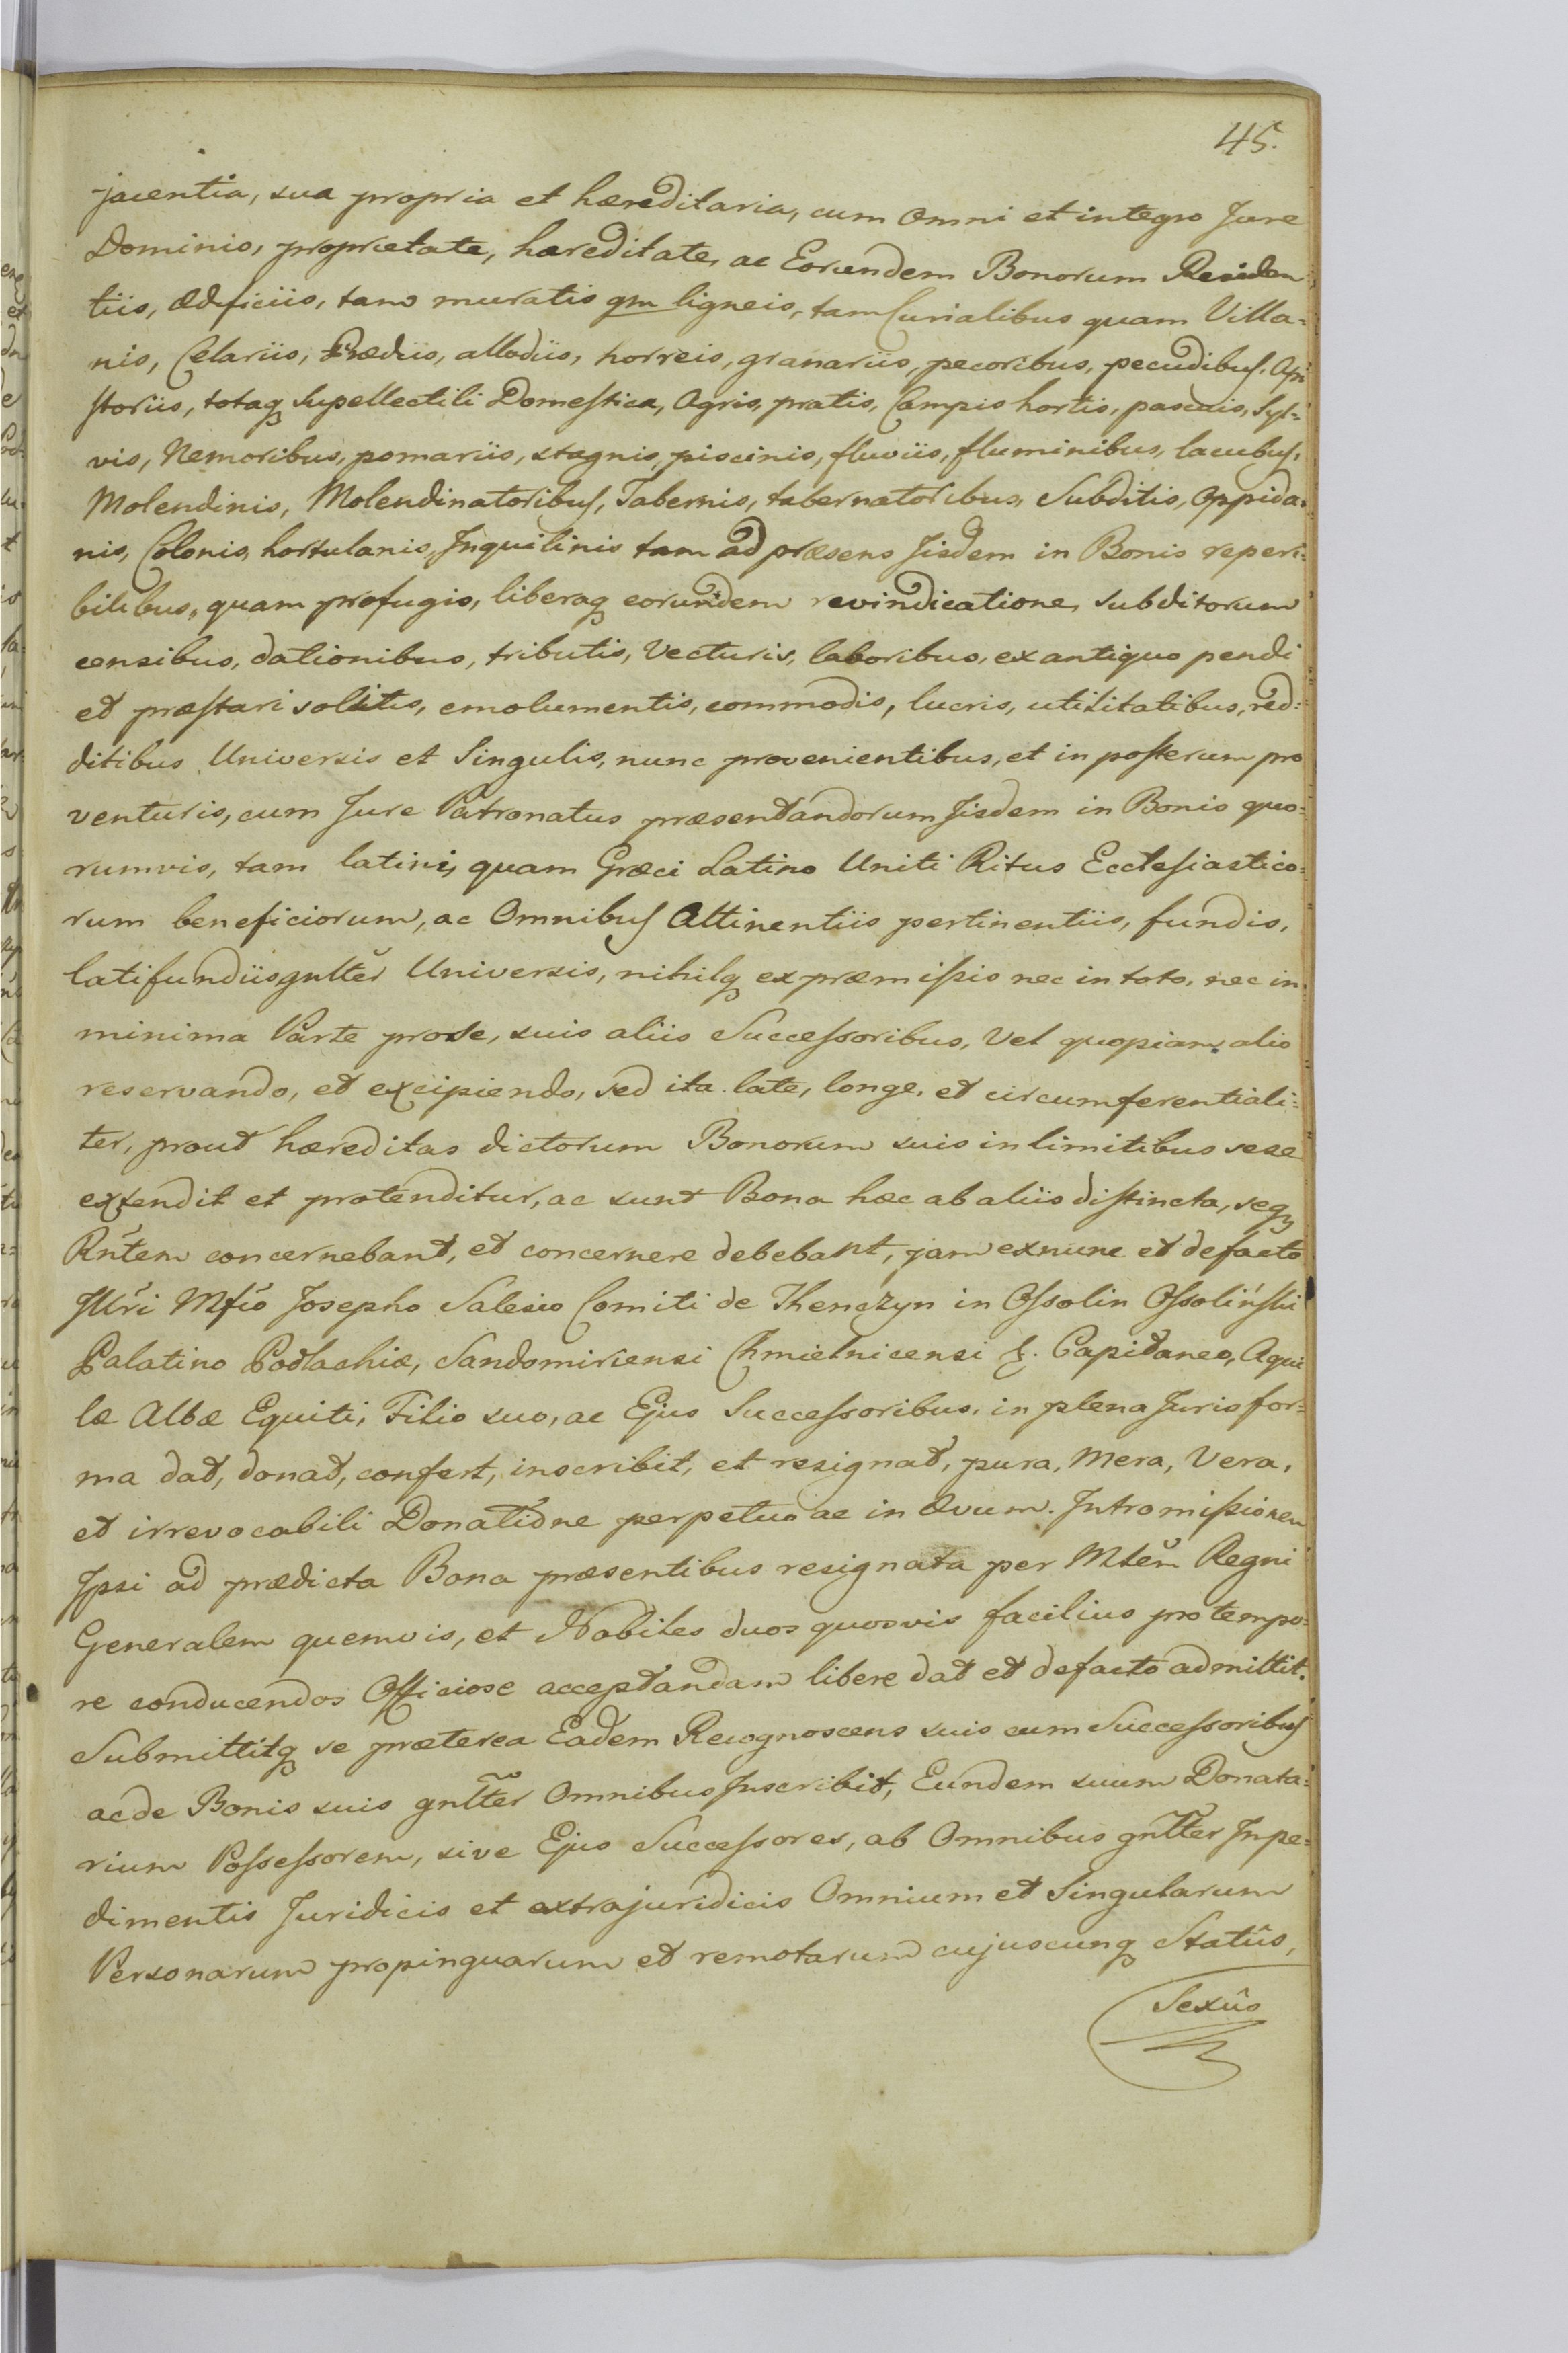 45.
jacentia, sua propria et hæreditaria, cum Omni et integro Jure
Dominio, proprietate, hæreditate, ac Eorundem Bonorum Residen
tiis, ædificiis, tam muratis qm ligneis, tam Curialibus quam Villa=
nis, Celariis, Prædiis, allodiis, horreis, granariis, pecoribus, pecudibus, Api
storiis, totaq Supellectili Domestica, Agris, pratis, Campis hortis, pascuis, Syl=
vis, Nemoribus, pomariis, stagnis, piscinis, fluviis, fluminibus, lacubus,
Molendinis, Molendinatoribus, Tabernis, tabernatoribus, Subditis, Oppida=
nis, Colonis, hortulanis, Inquilinis tam ad præsens Iisdem in Bonis reperi=
bilibus, quam profugis, liberaq eorundem revindicatione, subditorum
censibus, dationibus, tributis, Vecturis, laboribus, ex antiquo pendi
et præstari solitis, emolumentis, commodis, lucris, utilitatibus, red=
ditibus Universis et Singulis, nunc provenientibus, et in posterum pro
venturis, cum Jure Patronatus præsentandorum Iisdem in Bonis quo=
rumvis, tam latini, quam Græci Latino Uniti Ritus Ecclesiastico=
rum beneficiorum, ac Omnibus Attinentiis pertinentiis, fundis,
latifundiis gnltĕr Universis, nihilq ex præmissis nec in toto, nec in
minima Parte pro se, suis aliis Successoribus, Vel quopiam alio
reservando, et excipiendo, sed ita late, longe, et circumferentiali=
ter, prout hæreditas dictorum Bonorum suis in limitibus sese
extendit et protenditur, ac sunt Bona hæc ab aliis distincta, seq
Rntem concernebant, et concernere debebant, jam exnunc et defacto
Illri Mfco Josepho Salesio Comiti de Thenczyn in Ossolin Ossoliński
Palatino Podlachiæ, Sandomiriensi Chmielnicensi &. Capitaneo, Aqui
læ Albæ Equiti, Filio suo, ac Ejus Successoribus, in plena Juris for=
ma dat, donat, confert, inscribit, et resignat, pura, Mera, Vera,
et irrevocabili Donatione perpetuo ac in Ævum. Intromissionem
Ipsi ad prædicta Bona præsentibus resignata per Mtĕm Regni
Generalem quemvis, et Nobiles duos quosvis facilius pro tempo=
re conducendos Officiose acceptandam libere dat et defacto admittit.
Submittitq se præterea Eadem Recognoscens suis cum Successoribus
ac de Bonis suis gnltĕr Omnibus Inscribit, Eundem suum Donata=
rium Possessorem, sive Ejus Successores, ab Omnibus gnltĕr Inpe=
dimentis Juridicis et extrajuridicis Omnium et Singularum
Personarum propinquarum et remotarum cujuscunq Statûs,
Sexûs